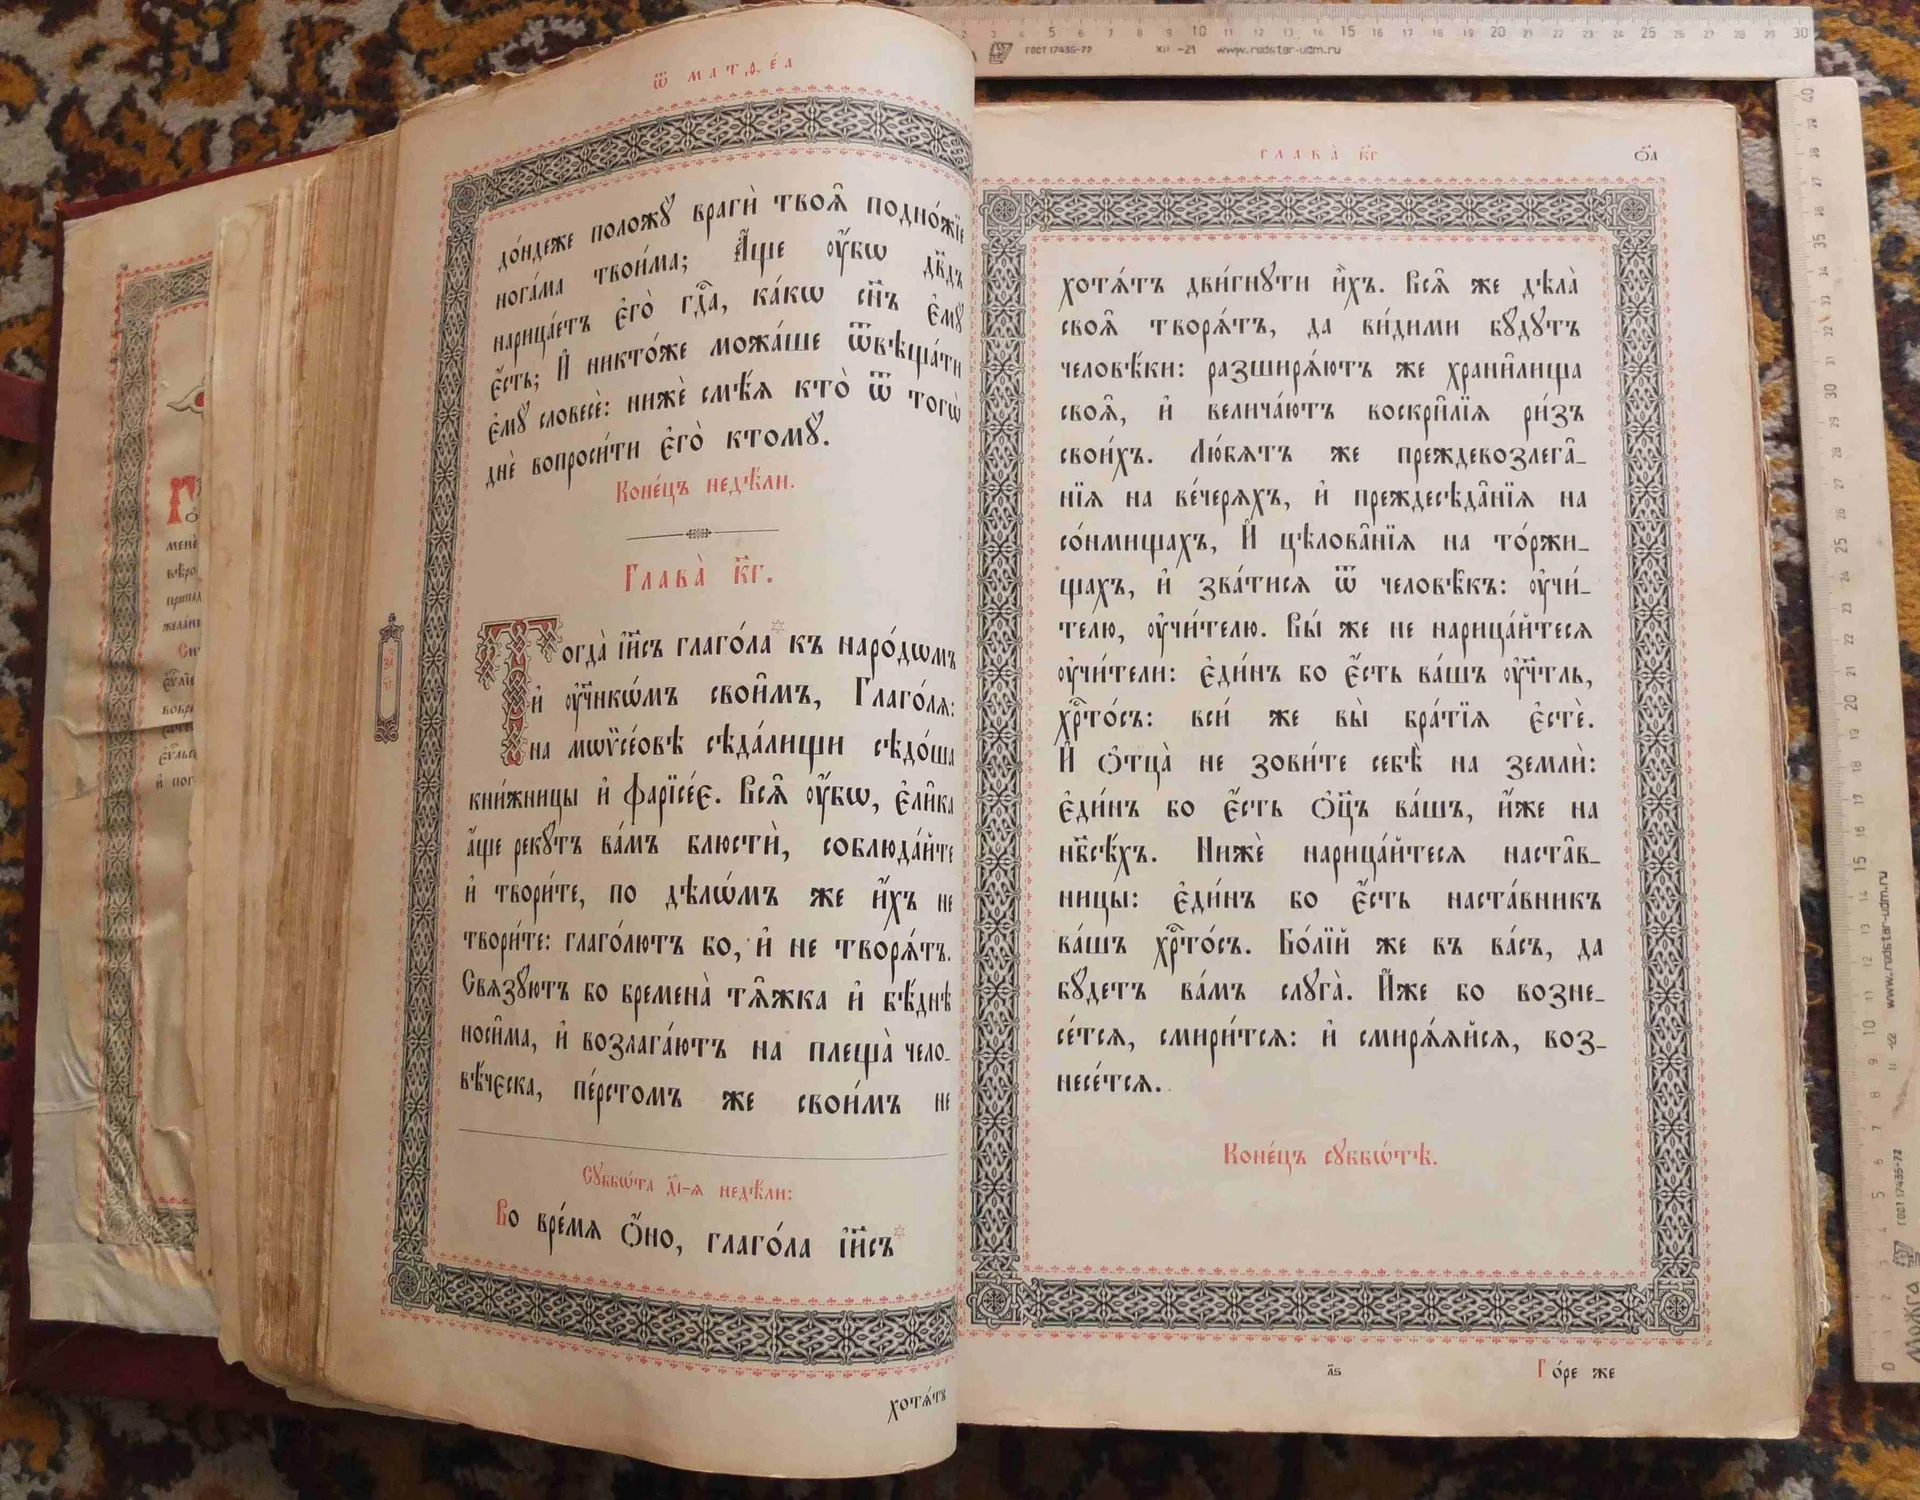 Ѿ МАТѲ҆Е́А
до́ндеже положꙋ̀ врагѝ твоѧ̑ подно́жїе
нога́ма твои́ма; А҆́ще ᲂу҆̀бѡ дв҃дъ
нарица́етъ є҆го̀ гдⷭ҇а, ка́кѡ сн҃ъ є҆мꙋ̀
є҆́сть; И҆ никто́же можа́ше ѿвѣща́ти
є҆мꙋ̀ словесѐ: нижѐ смѣ́ѧ кто̀ ѿ тогѡ̀
днѐ вопроси́ти є҆го̀ ктомꙋ̀.
Коне́цъ недѣ́ли.
Глава̀ к҃г.
Тогда̀ і҆и҃съ глаго́ла къ наро́дѡмъ
и҆ ᲂу҆чн҃кѡ́мъ свои̑мъ, Глаго́лѧ:
на мѡѷсе́овѣ сѣда́лищи сѣдо́ша
кни́жницы и҆ фарїсе́є. Всѧ̑ ᲂу҆̀бѡ, є҆ли̑ка
а҆́ще рекꙋ́тъ ва́мъ блюстѝ, соблюда́йте
и҆ твори́те, по дѣлѡ́мъ же и҆́хъ не
твори́те: глаго́лютъ бо, и҆ не творѧ́тъ.
Свѧзꙋ́ютъ бо бремена̀ тѧ̑жка и҆ бѣ́днѣ
носи̑ма, и҆ возлага́ютъ на плеща̀ чело-
вѣ́чєска, пе́рстомъ же свои́мъ не
Сꙋббѡ́та д҃і-ѧ недѣ́ли:
Во вре́мѧ ѻ҆́но, глаго́ла і҆и҃съ
хотѧ́тъ
ГЛАВА̀ к҃г
ѻ҃а
хотѧ́тъ дви́гнꙋти и҆̀хъ. Всѧ̑ же дѣла̀
своѧ̑ творѧ́тъ, да ви́дими бꙋ́дꙋтъ
человѣ́ки: разширѧ́ютъ же храни̑лища
своѧ̑, и҆ велича́ютъ воскри̑лїѧ ри́зъ
свои́хъ. Лю́бѧтъ же преждевозлега̑-
нїѧ на ве́черѧхъ, и҆ преждесѣда̑нїѧ на
со́нмищахъ, И҆ цѣлова̑нїѧ на то́ржи-
щахъ, и҆ зва́тисѧ ѿ человѣ̑къ: ᲂу҆чи́-
телю, ᲂу҆чи́телю. Вы́ же не нарица́йтесѧ
ᲂу҆чи́тели: є҆ди́нъ бо є҆́сть ва́шъ ᲂу҆чт҃ль,
хрⷭ҇то́съ: вси́ же вы̀ бра́тїѧ є҆стѐ.
И҆ ѻ҆тца̀ не зови́те себѣ̀ на землѝ:
є҆ди́нъ бо є҆́сть ѻ҆ц҃ъ ва́шъ, и҆́же на
нб҃сѣ́хъ. Нижѐ нарица́йтесѧ наста̑в-
ницы: є҆ди́нъ бо є҆́сть наста́вникъ
ва́шъ хрⷭ҇то́съ. Бо́лїй же въ ва́съ, да
бꙋ́детъ ва́мъ слꙋга̀. И҆́же бо возне-
се́тсѧ, смири́тсѧ: и҆ смирѧ́ѧйсѧ, воз-
несе́тсѧ.
Коне́цъ сꙋббѡ́тѣ.
л҃ѕ
Го́ре же
ГОСТ 17435-72 XII -21 www.redstar-udm.ru
www.redstar-udm.ru
ГОСТ 17435-72